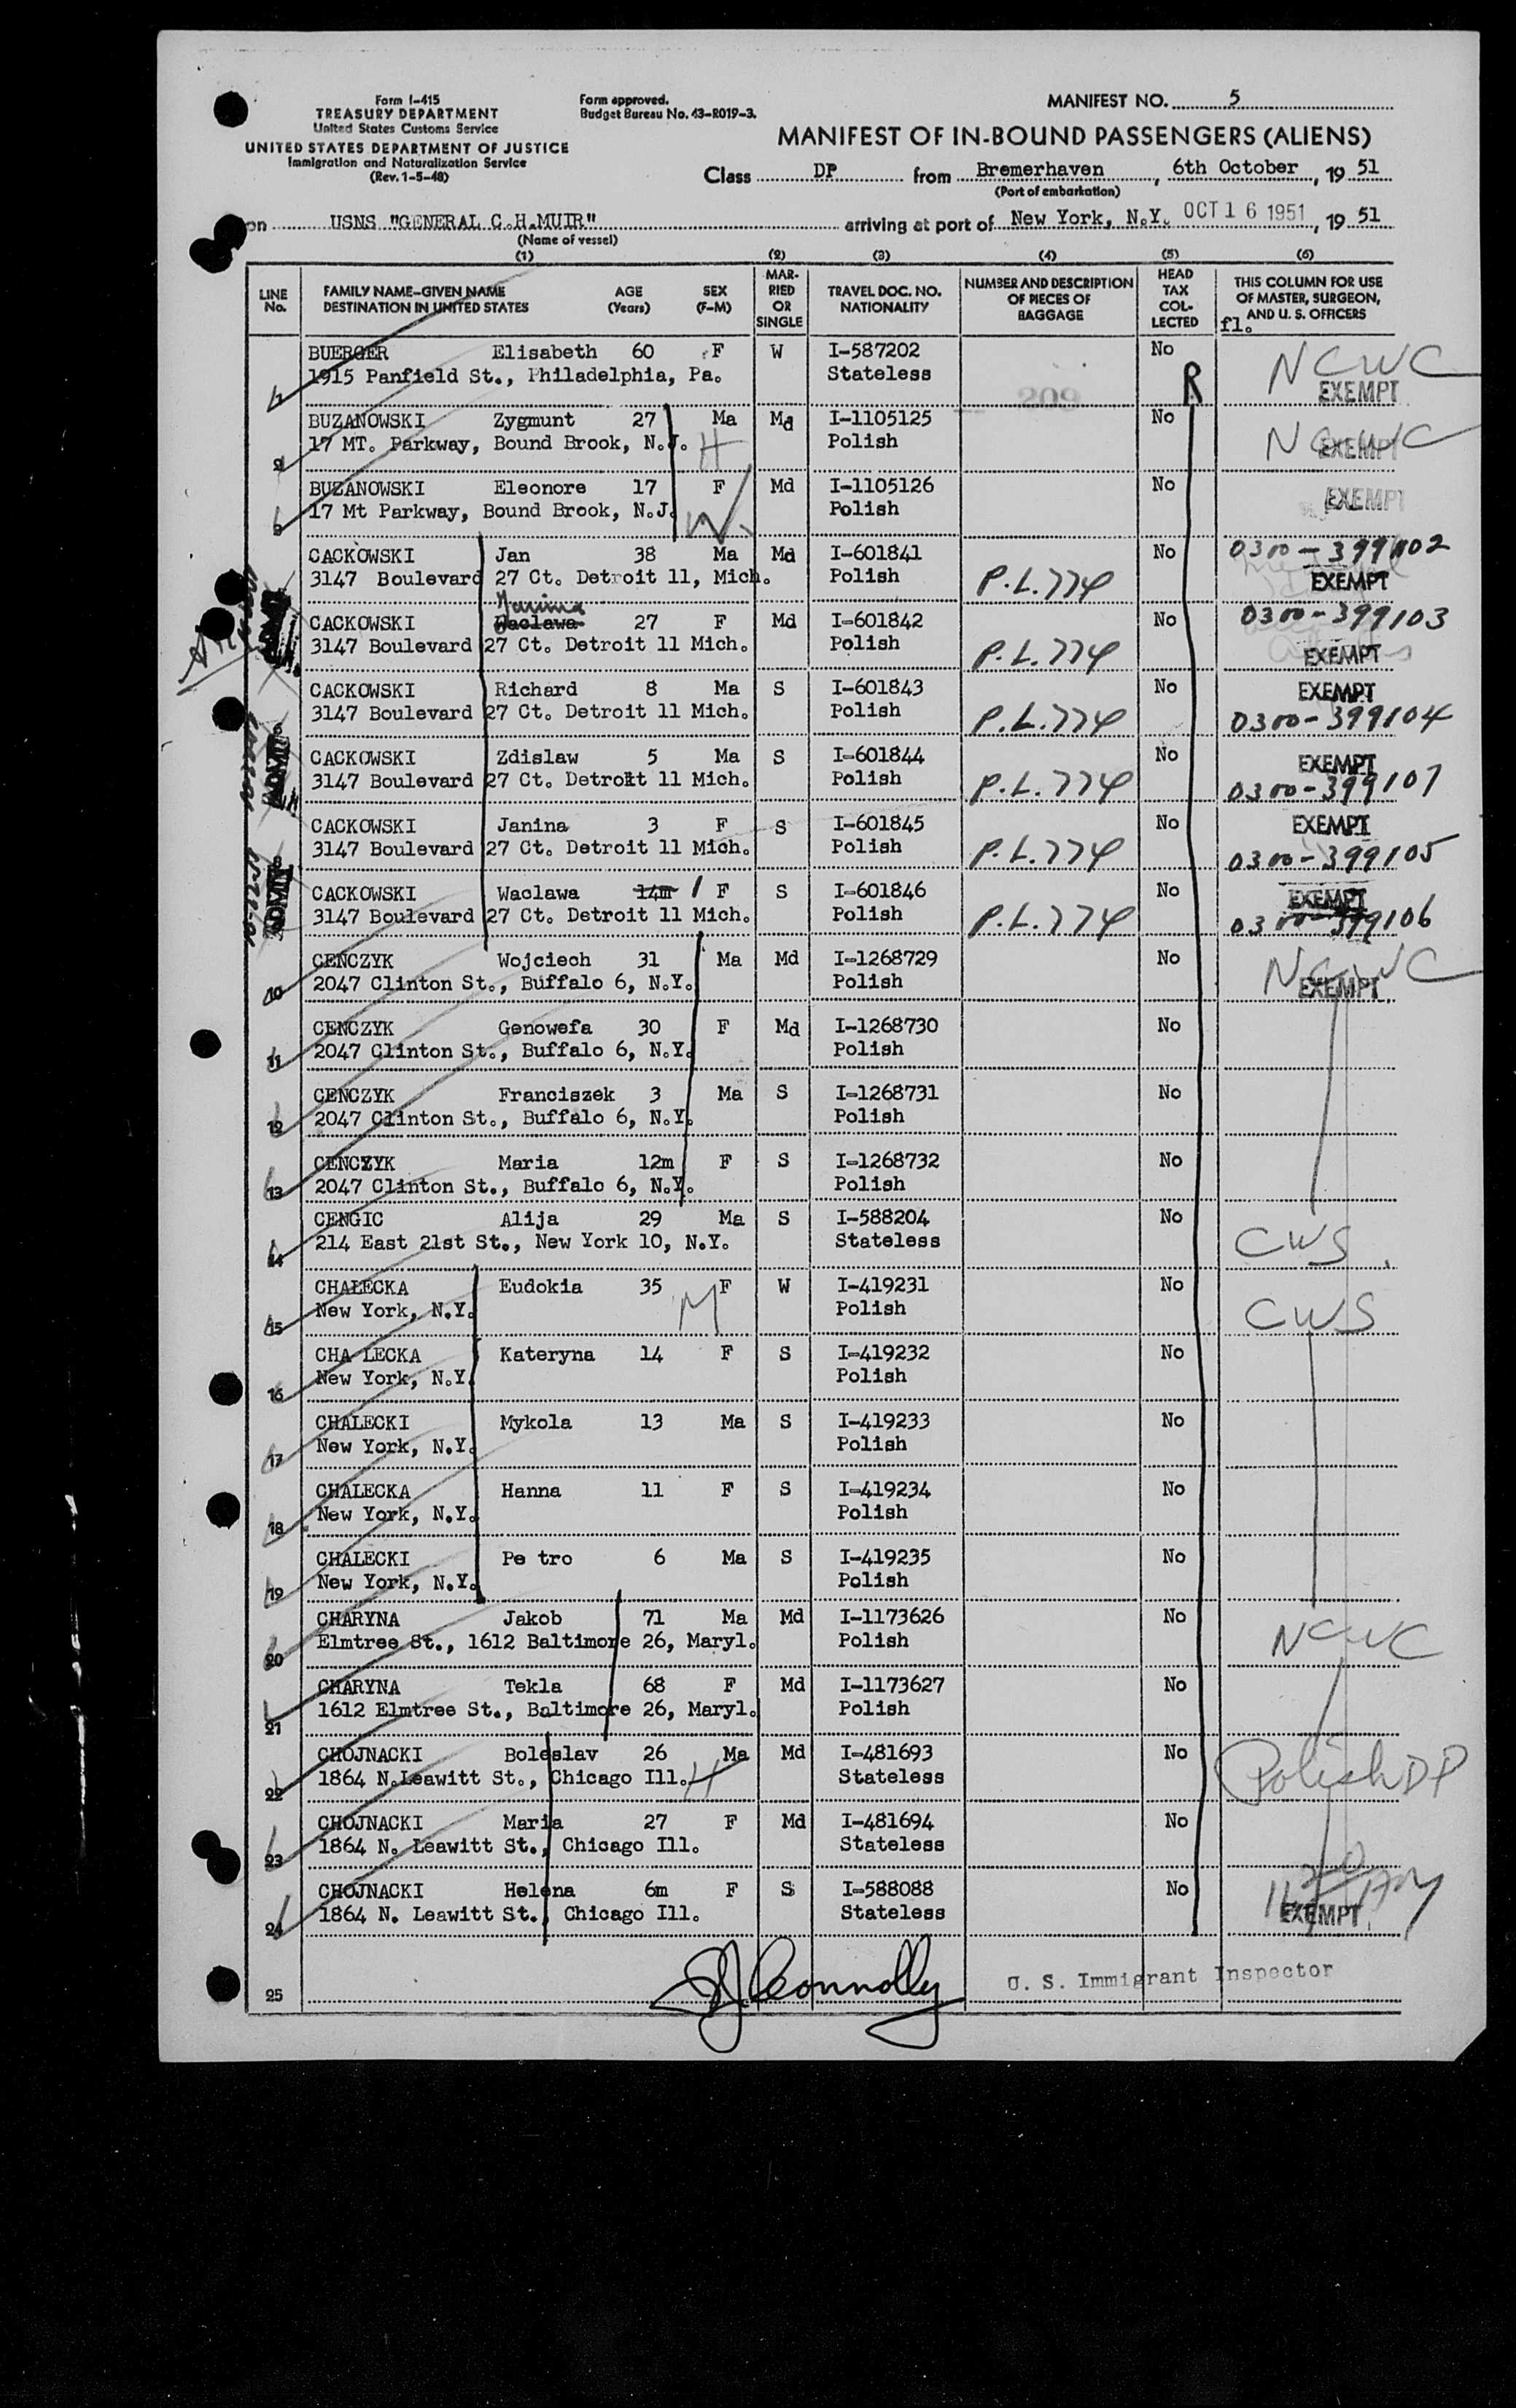 Form I-415
TREASURY DEPARTMENT
United States Customs Service
UNITED STATES DEPARTMENT OF JUSTICE
Immigration and Naturalization Service
(Rev. 1-5-48)
Form approved.
Budget Bureau No. 43-R019-3.
MANIFEST NO. 5
MANIFEST OF IN-BOUND PASSENGERS (ALIENS)
Class DP from Bremerhaven, 6th October, 19 51
(Port of embarkation)
on USNS "GENERAL C.H.MUIR" arriving at port of New York, N.Y. OCT 16 1951, 19 51
(Name of vessel)
(1) (2) (3) (4) (5) (6)
LINE No. FAMILY NAME-GIVEN NAME DESTINATION IN UNITED STATES AGE (Years) SEX (F-M) MARRIED OR SINGLE TRAVEL DOC. NO. NATIONALITY NUMBER AND DESCRIPTION OF PIECES OF BAGGAGE HEAD TAX COLLECTED THIS COLUMN FOR USE OF MASTER, SURGEON, AND U. S. OFFICERS
fl.
1 BUERGER Elisabeth 60 F W I-587202 No NCWC
1915 Panfield St., Philadelphia, Pa. Stateless 209 R EXEMPT
2 BUZANOWSKI Zygmunt 27 Ma Md I-1105125 No NCWC
17 MT. Parkway, Bound Brook, N.J. H Polish EXEMPT
3 BUZANOWSKI Eleonore 17 F Md I-1105126 No EXEMPT
17 Mt Parkway, Bound Brook, N.J. W. Polish
CACKOWSKI Jan 38 Ma Md I-601841 No 0300-399102
3147 Boulevard 27 Ct. Detroit 11, Mich. Polish P.L.774 EXEMPT
Janina
CACKOWSKI Waclawa 27 F Md I-601842 No 0300-399103
3147 Boulevard 27 Ct. Detroit 11 Mich. Polish P.L.774 EXEMPT
CACKOWSKI Richard 8 Ma S I-601843 No EXEMPT
3147 Boulevard 27 Ct. Detroit 11 Mich. Polish P.L.774 0300-399104
CACKOWSKI Zdislaw 5 Ma S I-601844 No EXEMPT
3147 Boulevard 27 Ct. Detroit 11 Mich. Polish P.L.774 0300-399107
CACKOWSKI Janina 3 F S I-601845 No EXEMPT
3147 Boulevard 27 Ct. Detroit 11 Mich. Polish P.L.774 0300-399105
CACKOWSKI Waclawa 14m 1 F S I-601846 No EXEMPT
3147 Boulevard 27 Ct. Detroit 11 Mich. Polish P.L.774 0300-399106
10 CENCZYK Wojciech 31 Ma Md I-1268729 No NCWC
2047 Clinton St., Buffalo 6, N.Y. Polish EXEMPT
11 CENCZYK Genowefa 30 F Md I-1268730 No
2047 Clinton St., Buffalo 6, N.Y. Polish
12 CENCZYK Franciszek 3 Ma S I-1268731 No
2047 Clinton St., Buffalo 6, N.Y. Polish
13 CENCZYK Maria 12m F S I-1268732 No
2047 Clinton St., Buffalo 6, N.Y. Polish
14 CENGIC Alija 29 Ma S I-588204 No CWS
214 East 21st St., New York 10, N.Y. Stateless
15 CHALECKA Eudokia 35 F W I-419231 No CWS
New York, N.Y. M Polish
16 CHA LECKA Kateryna 14 F S I-419232 No
New York, N.Y. Polish
17 CHALECKI Mykola 13 Ma S I-419233 No
New York, N.Y. Polish
18 CHALECKA Hanna 11 F S I-419234 No
New York, N.Y. Polish
19 CHALECKI Pe tro 6 Ma S I-419235 No
New York, N.Y. Polish
20 CHARYNA Jakob 71 Ma Md I-1173626 No NCWC
Elmtree St., 1612 Baltimore 26, Maryl. Polish
21 CHARYNA Tekla 68 F Md I-1173627 No
1612 Elmtree St., Baltimore 26, Maryl. Polish
22 CHOJNACKI Boleslav 26 Ma Md I-481693 No Polish DP
1864 N.Leawitt St., Chicago Ill. H Stateless
23 CHOJNACKI Maria 27 F Md I-481694 No
1864 N. Leawitt St., Chicago Ill. Stateless
24 CHOJNACKI Helena 6m F S I-588088 No
1864 N. Leawitt St., Chicago Ill. Stateless EXEMPT
25 Connolly U. S. Immigrant Inspector